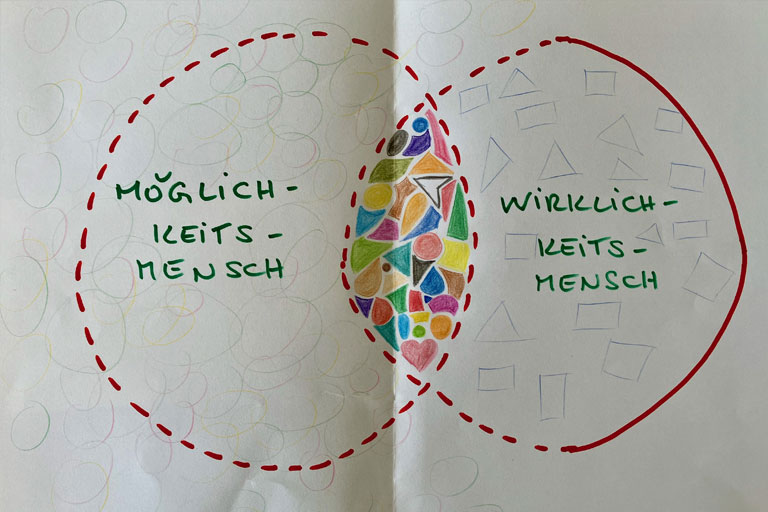 MÖGLICH-
KEITS-
MENSCH
WIRKLICH-
KEITS-
MENSCH